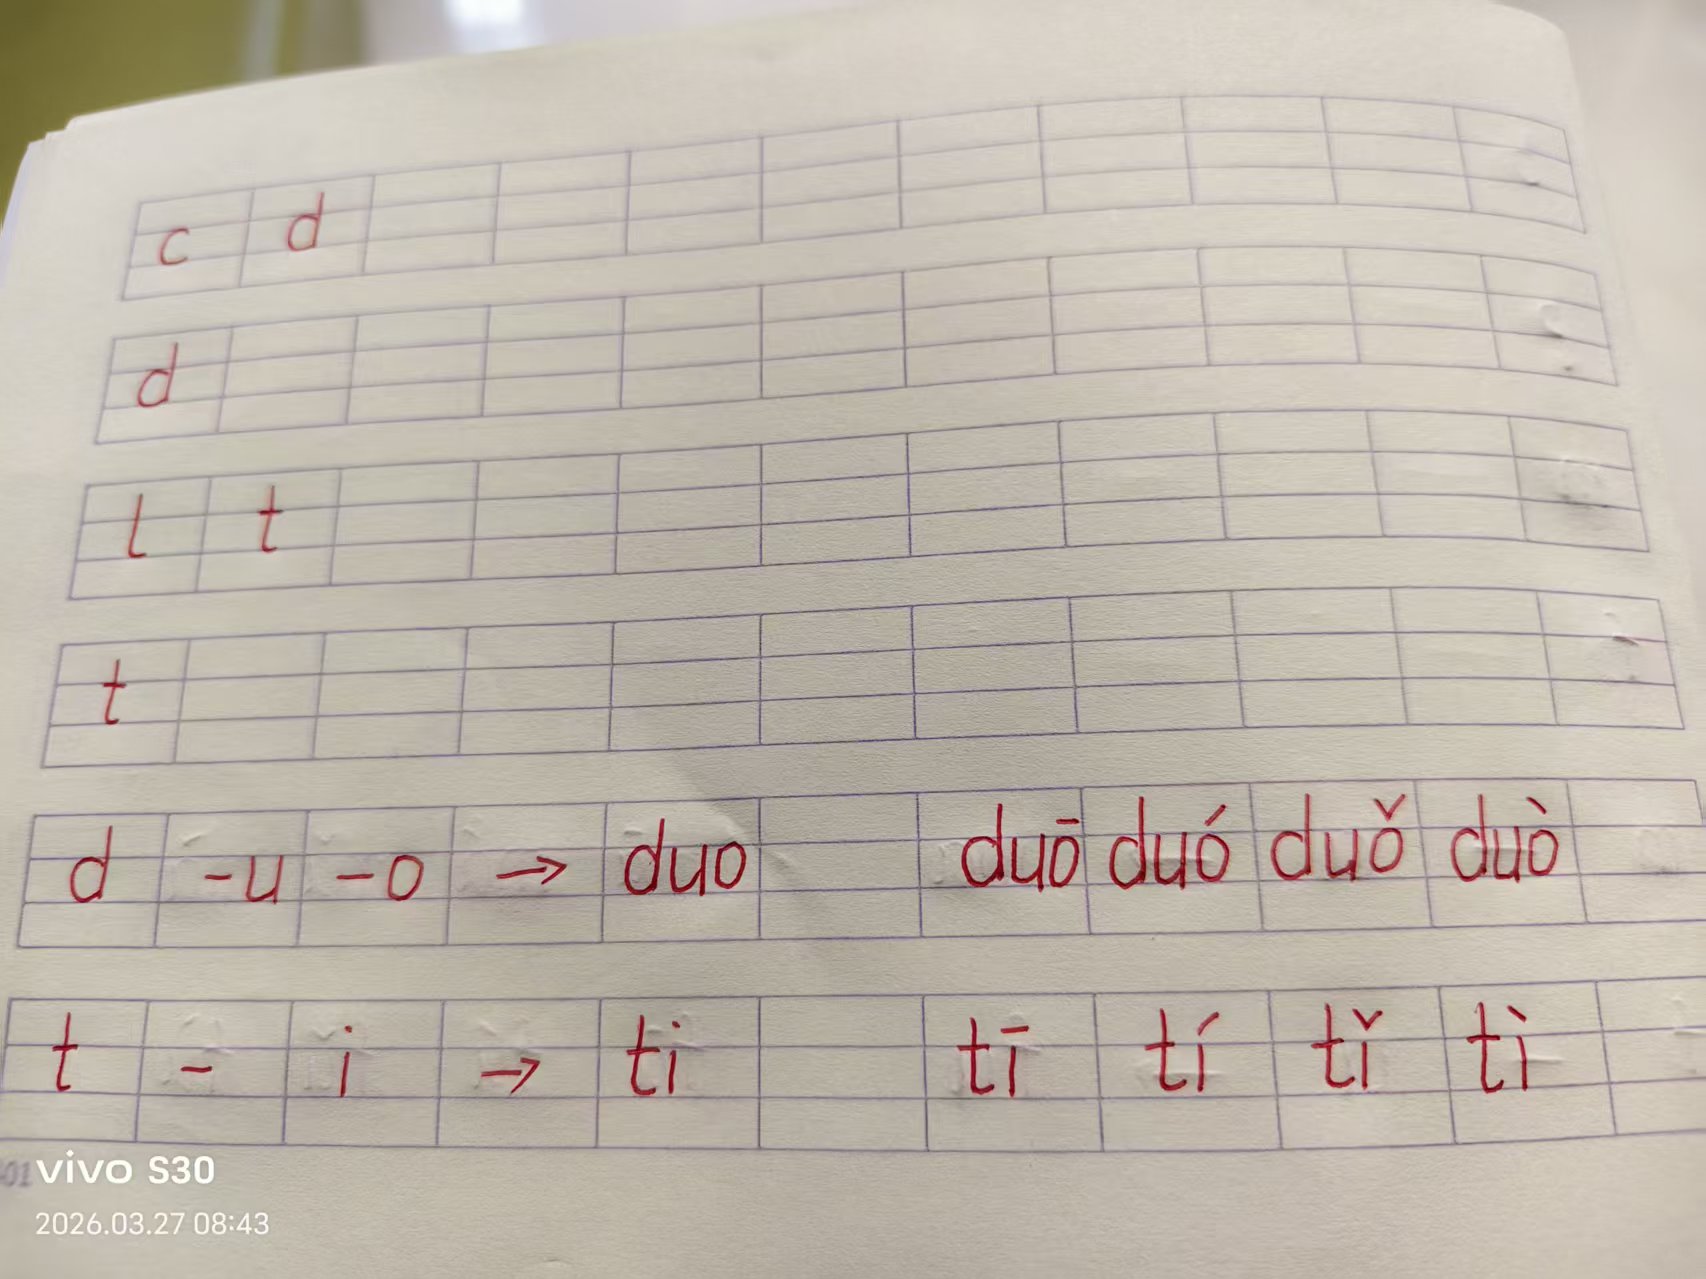 c d
d
l t
t
d -u -o → duo duō duó duǒ duò
t - i → ti tī tí tǐ tì
01
vivo S30
2026.03.27 08:43